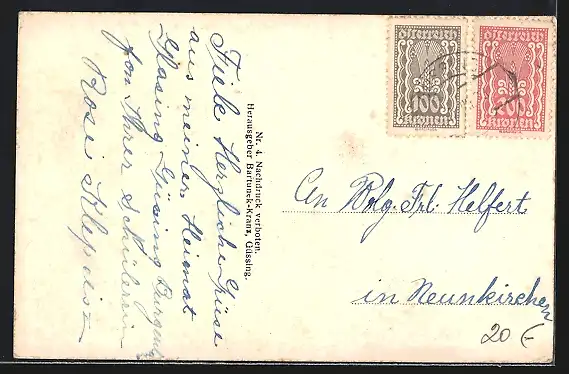 Fiele Herzliche Grüse
aus meiner Heimat
Güsing Burgenld
fon Ihrer Schülerin
Rosi
Nr. 4. Nachdruck verboten.
Herausgeber Bartunek-Kranz, Güssing.
österreich
100
kronen
österreich
kronen
An Frl. Helfert
in Neunkirchen
20 €